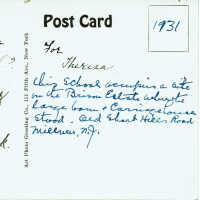 Post Card
1931
For
Theresa
This School occupies a site
on the Estate where the
large barn + Carriage house
stood. Old Short Hills Road
Millburn, N.J.
Art Photo Greeting Co., 111 Fifth Ave., New York